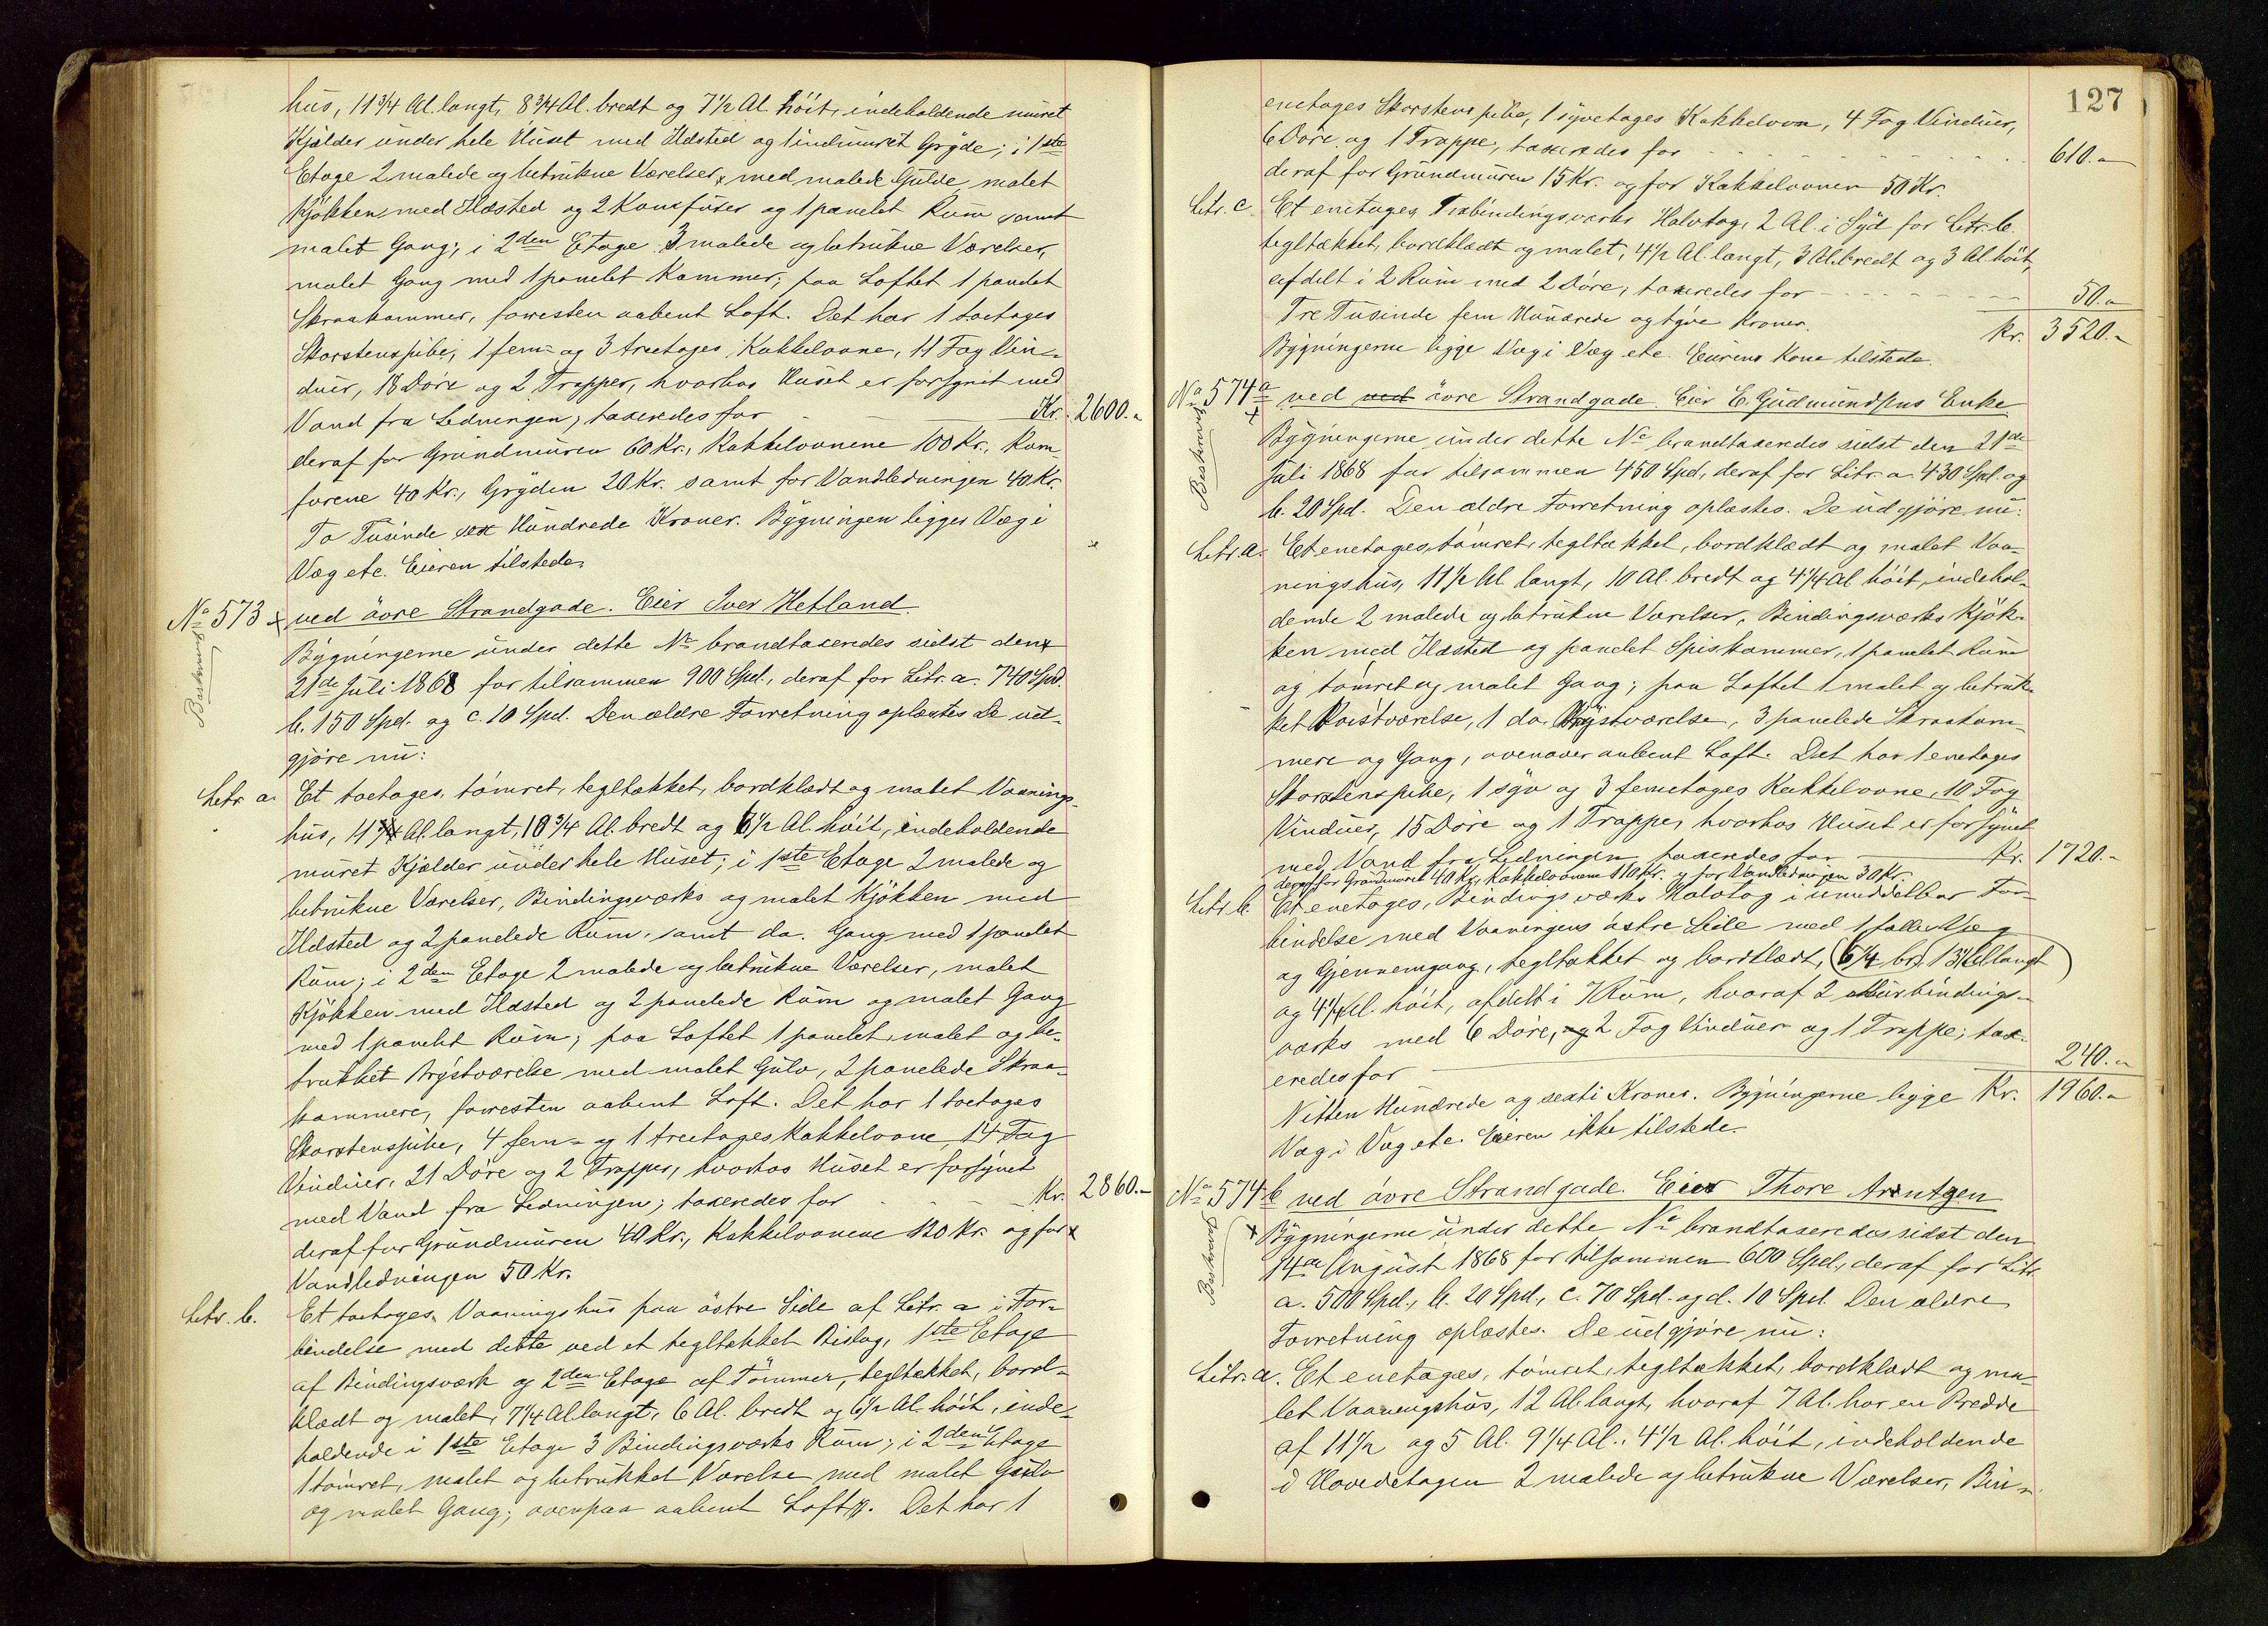 hus, 11 3/4 Al. langt, 8 3/4 Al. bredt og 7 1/2 Al. höit, indeholdende muret
Kjælder under hele Huset med Ildsted og 1 indmuret Gryde; i 1ste
Etage 2 malede og betrukne Værelser, med malede Gulve, malet
Kjökken med Ildsted og 2 Komfurer og 1 panelet Rum samt
malet Gang; i 2den Etage 3 malede og betrukne Værelser,
malet Gang med 1 panelet Kammer; paa Loftet 1 panelet
Skraakammer, foresten aabent Loft. Det har 1 toetages
Skorstenspibe, 1 fem- og 3 treetages Kakkelovne, 11 Fag Vin-
duer, 18 Döre og 2 Trapper, hvorhos Huset er forsynet med
Vand fra Ledningen; taxeredes for Kr. 2600.-
deraf for Grundmuren 60 Kr., Kakkelovnene 100 Kr., Kom-
furene 40 Kr., Gryden 20 Kr. samt for Vandledningen 40 Kr.
To Tusinde sex Hundrede Kroner. Bygningen ligger Væg i
Væg etc. Eieren tilstede.
No 573 x ved övre Strandgade. Eier Iver Hetland
Bygningerne under dette No brandtaxeredes sidst den
21de Juli 1868 for tilsammen 900 Spd., deraf for Litr. a. 740 Spd.
b. 150 Spd. og c. 10 Spd. Den ældre Forretning oplæstes De ud-
gjöre nu:
Litr. a. Et toetages, tömret, tegltækket, bordklædt og malet Vaanings-
hus, 11 Al. langt, 10 3/4 Al. bredt og 6 1/2 Al. höit, indeholdende
muret Kjælder under hele Huset; i 1ste Etage 2 malede og
betrukne Værelser, Bindingsværks og malet Kjökken med
Ildsted og 2 panelede Rum, samt do. Gang med 1 panelet
Rum; i 2den Etage 2 malede og betrukne Værelser, malet
Kjökken med Ildsted og 2 panelede Rum og malet Gang
med 1 panelet Rum; paa Loftet 1 panelet, malet og be-
trukket Kvistværelse med malet Gulv, 2 panelede Skraa-
kammere, foresten aabent Loft. Det har 1 toetages
Skorstenspibe, 4 fem- og 1 treetages Kakkelovne, 14 Fag
Vinduer, 21 Döre og 2 Trapper, hvorhos Huset er forsynet
med Vand fra Ledningen; taxeredes for Kr. 2860.-
deraf for Grundmuren 40 Kr., Kakkelovnene 120 Kr. og for
Vandledningen 50 Kr.
Litr. b. Et toetages Vaaningshus paa östre Side af Litr. a i For-
bindelse med dette ved et tegltækket Bislag, 1ste Etage
af Bindingsværk og 2den Etage af Tömmer, tegltækket, bord-
klædt og malet, 7 1/4 Al langt, 6 Al. bredt og 6 1/2 Al. höit, inde-
holdende i 1ste Etage 3 Bindingsværks Rum; i 2den Etage
1 tömret, malet og betrukket Værelse med malet Gulv
og malet Gang; ovenpaa aabent Loft. Det har 1
127
enetages Skorstenspibe, 1 syvetages Kakkelovn, 4 Fag Vinduer,
6 Döre og 1 Trappe, taxeredes for 610.-
deraf for Grundmuren 15 Kr. og for Kakkelovnen 50 Kr.
Litr. c. Et enetages Bindingsværks Halvtag, 2 Al. i Syd for Litr. b.
tegltækket, bordklædt og malet, 4 1/2 Al. langt, 3 Al. bredt og 3 Al. höit,
afdelt i 2 Rum med 2 Döre; taxeredes for 50.-
Tre Tusinde fem Hundrede og tyve Kroner. Kr. 3520.-
Bygningerne ligge Væg i Væg etc. Eierens Kone tilstede.
No 574 a ved ved övre Strandgade. Eier E. Gudmundsens Enke
Bygningerne under dette No brandtaxeredes sidst den 21de
Juli 1868 for tilsammen 450 Spd, deraf for Litr. a 430 Spd. og
b. 20 Spd. Den ældre Forretning oplæstes. De udgjöre nu:
Litr. a. Et enetages, tömret, tegltækket, bordklædt og malet Vaa-
ningshus, 11 1/2 Al langt, 10 Al. bredt og 4 1/4 Al höit, indehol-
dende 2 malede og betrukne Værelser, Bindingsværks Kjök-
ken med Ildsted og panelet Spiskammer, 1 panelet Rum
og tömret og malet Gang; paa Loftet 1 malet og betruk-
ket Kvistværelse, 1 do. værelse, 3 panelede Skraakam-
mere og Gang, ovenover aabent Loft. Det har 1 enetages
Skorstenspibe, 1 syv og 3 femetages Kakkelovne, 10 Fag
Vinduer, 15 Döre og 1 Trappe, hvorhos Huset er forsynet
med Vand fra Ledningen taxeredes for Kr. 1720.-
deraf for Grundmuren 40 Kr, Kakkelovnene 110 Kr. og for Vandledningen 30 Kr.
Litr. b. Et enetages, Bindingsværks Halvtag i umiddelbar For-
bindelse med Vaaningens östre Side med 1 fælles Væg
og Gjennemgang, tegltækket og bordklædt, (6 1/4 br. 13 Al langt)
og 4 1/4 Al. höit, afdelt i Rum, hvoraf 2 Murbindings-
værks med 6 Döre, 2 Fag Vinduer og 1 Trappe; tax-
eredes for 240.-
Nitten Hundrede og sexti Kroner. Bygningerne ligge Kr. 1960.-
Væg i Væg etc. Eieren ikke tilstede.
No 574 b ved övre Strandgade. Eier Thore Arentzen
Bygningerne under dette No brandtaxeredes sidst den
14de August 1868 for tilsammen 600 Spd., deraf for Litr.
a. 500 Spd., b. 20 Spd., c. 70 Spd. og d. 10 Spd. Den ældre
Forretning oplæstes. De udgjöre nu:
Litr. a. Et enetages, tömret, tegltækket, bordklædt og ma-
let Vaaningshus, 12 Al. langt, hvoraf 7 Al. har en Bredde
af 11 1/2 og 5 Al. 9 1/4 Al., 4 1/2 Al. höit, indeholdende
i Hovedetagen 2 malede og betrukne Værelser, Bin-